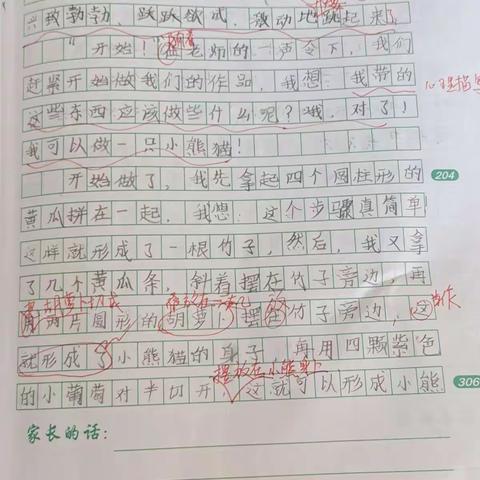 兴致勃勃，跃跃欲试，激动地跳起来了
"开始！"随着老师的一声令下，我们
赶紧开始做我们的作品，我想：我带的
这些东西应该做些什么呢？哦，对了！
我可以做一只小熊猫！
开始做了，我先拿起四个圆柱形的
204
黄瓜拼在一起，我想：这个步骤真简单
这样就形成了一根竹子，然后，我又拿
了几个黄瓜条，斜着摆在竹子旁边，再
用两片圆形的胡萝卜摆在竹子旁边，这
就形成了小熊猫的身子，再用四颗紫色
摆放在小熊身上
的小葡萄对半切开，这就可以形成小熊
306
家长的话：